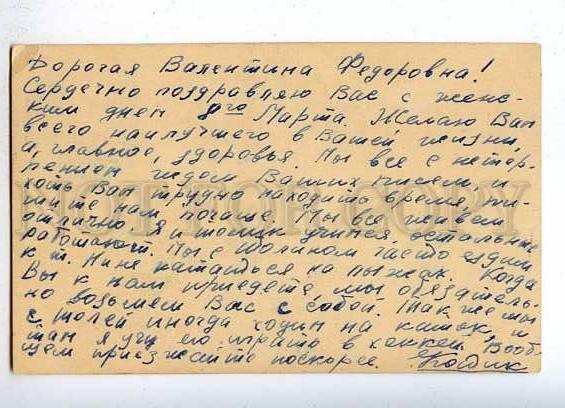 Дорогая Валентина Федоровна!
Сердечно поздравляю Вас с женс-
ким днем 8го Марта. Желаю Вам
всего наилучшего в Вашей жизни,
а, главное, здоровья. Мы все с нетер-
пением ждем Ваших писем, и
хоть Вам трудно находить время, пи-
шите нам почаще. Мы все живем
отлично. Я и Толик учимся, остальные
работают. Мы с Толиком часто ездим
к т. Нине кататься на лыжах. Когда
Вы к нам приедете, мы обязатель-
но возьмем Вас с собой. Также мы
с Толей иногда ходим на каток, и
там я учу его играть в хоккей. Вооб-
щем приезжайте поскорее.
NOT FOR COPY